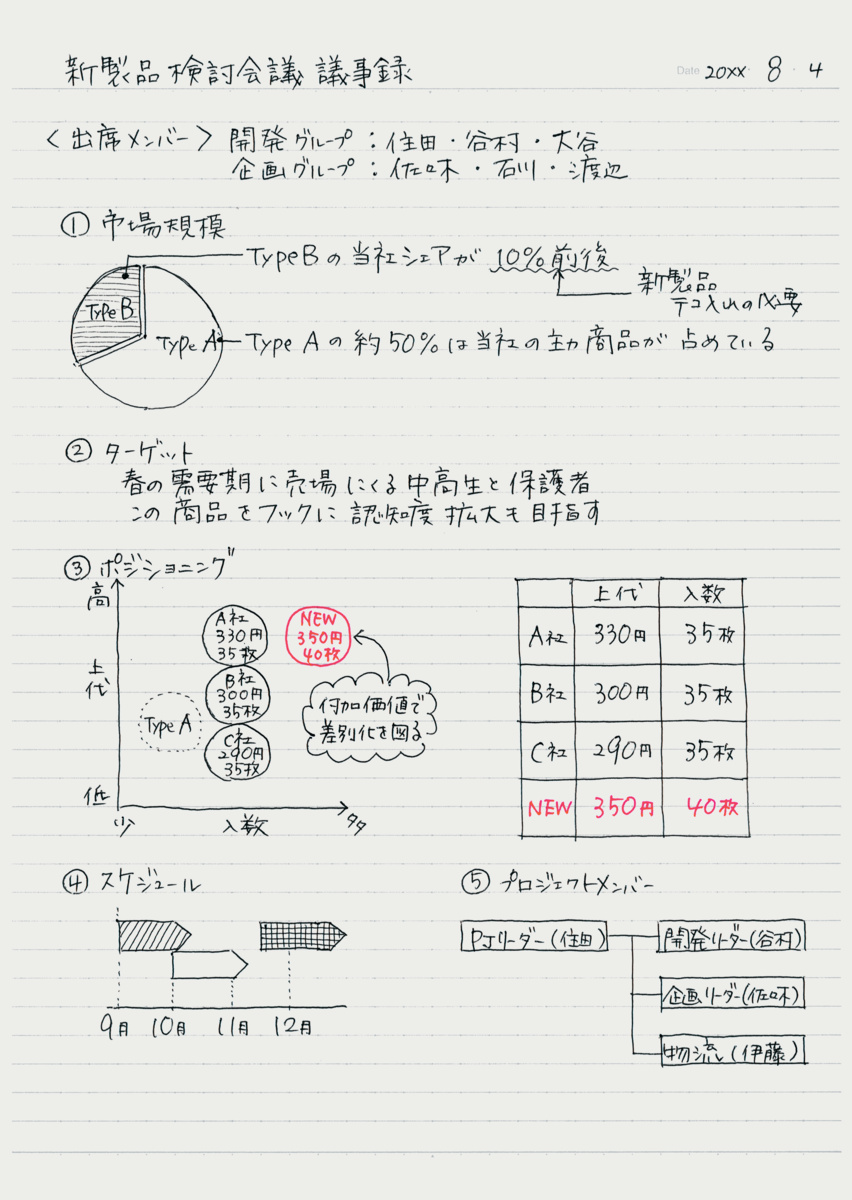 新製品検討会議 議事録
Date 20XX・8・4
〈出席メンバー〉開発グループ：住田・谷村・大谷
企画グループ：佐々木・石川・渡辺
① 市場規模
Type Bの当社シェアが 10%前後
新製品
テコ入れの必要
Type B
Type A
Type Aの約50%は当社の主力商品が占めている
② ターゲット
春の需要期に売場にくる中高生と保護者
この商品をフックに認知度拡大も目指す
③ ポジショニング
高
上代
低
少
入数
多
A社
330円
35枚
B社
300円
35枚
C社
290円
35枚
Type A
NEW
350円
40枚
付加価値で
差別化を図る
上代 入数
A社 330円 35枚
B社 300円 35枚
C社 290円 35枚
NEW 350円 40枚
④ スケジュール
9月 10月 11月 12月
⑤ プロジェクトメンバー
PJリーダー(住田)
開発リーダー(谷村)
企画リーダー(佐々木)
物流(伊藤)